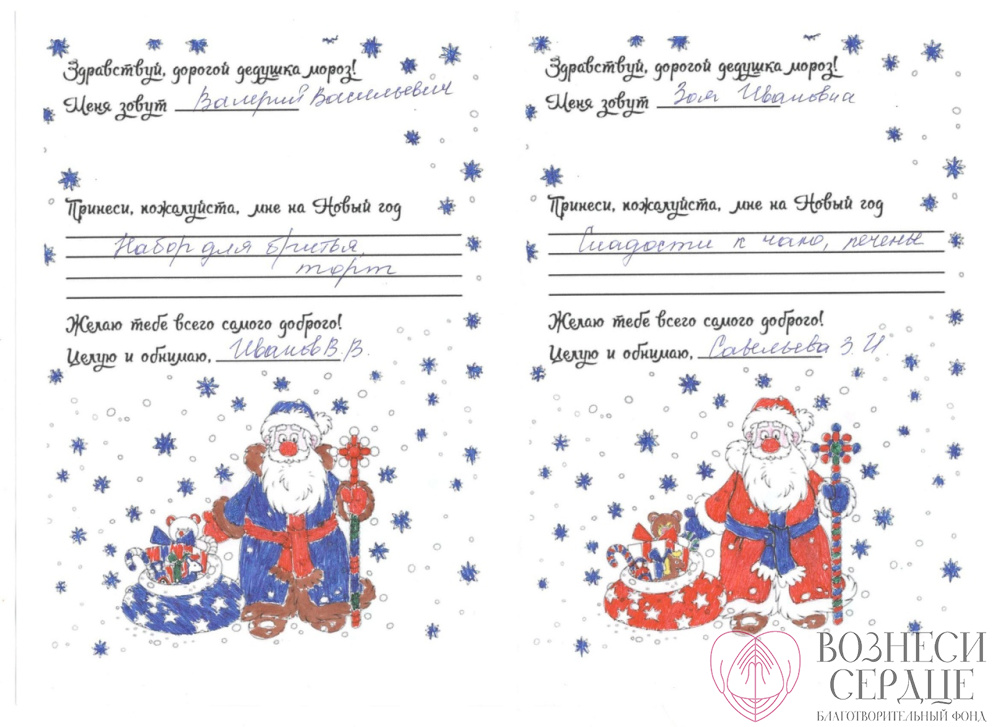 Здравствуй, дорогой дедушка мороз!
Меня зовут Валерий Васильевич
Принеси, пожалуйста, мне на Новый год
Набор для бритья,
торт
Желаю тебе всего самого доброго!
Целую и обнимаю, Иванов В.В.
Здравствуй, дорогой дедушка мороз!
Меня зовут Зоя Ивановна
Принеси, пожалуйста, мне на Новый год
Сладости к чаю, печенье
Желаю тебе всего самого доброго!
Целую и обнимаю, Савельева З.И.
ВОЗНЕСИ
СЕРДЦЕ
БЛАГОТВОРИТЕЛЬНЫЙ ФОНД